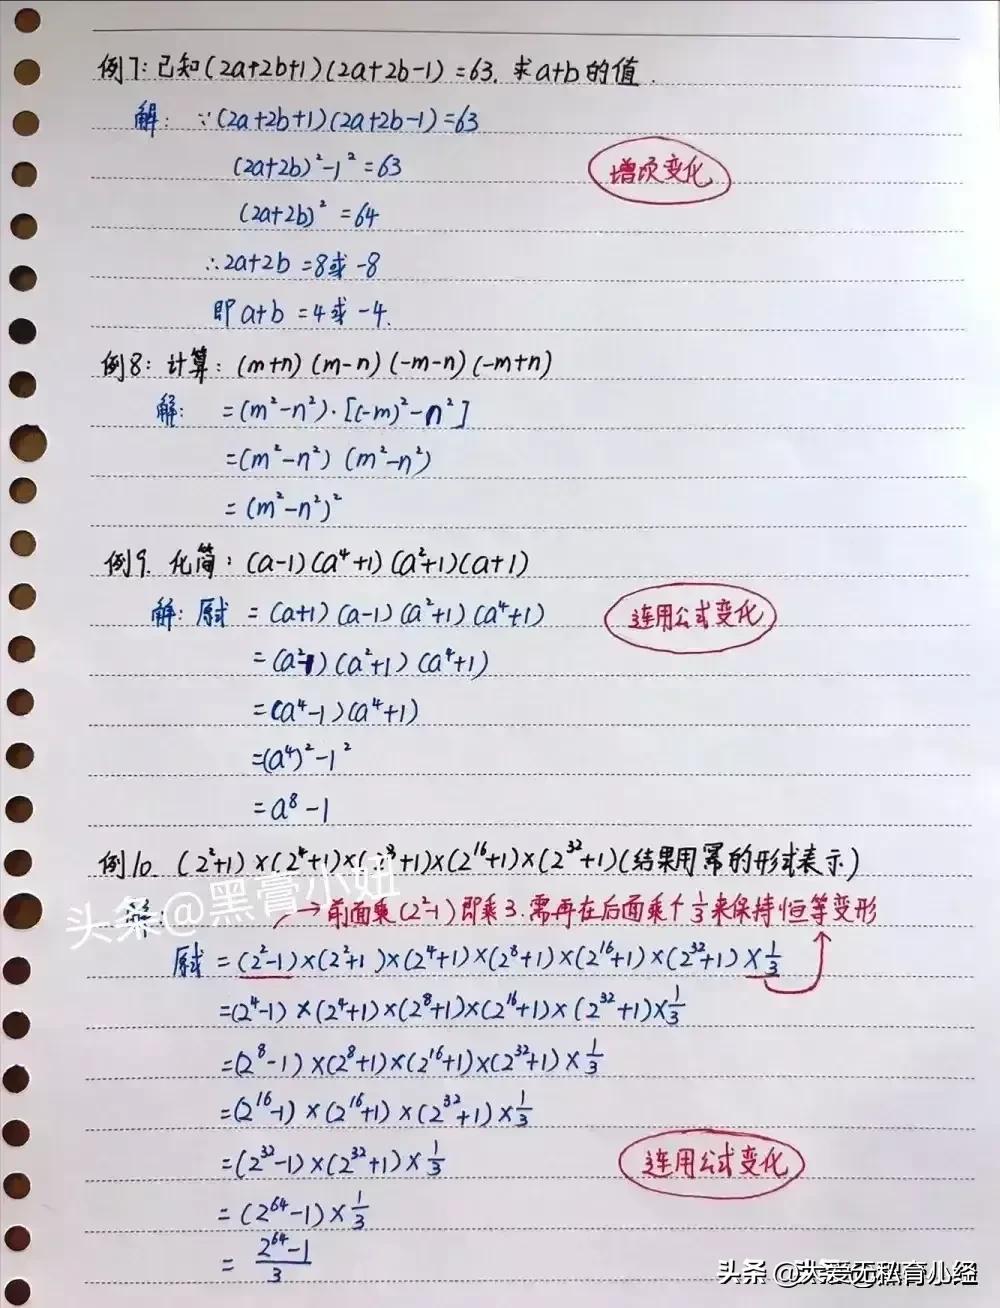 例7:已知(2a+2b+1)(2a+2b-1)=63. 求a+b的值.
解: ∵(2a+2b+1)(2a+2b-1)=63
(2a+2b)²-1²=63
增项变化
(2a+2b)²=64
∴2a+2b=8或-8
即a+b=4或-4.
例8:计算:(m+n)(m-n)(-m-n)(-m+n)
解: =(m²-n²)·[(-m)²-n²]
=(m²-n²)(m²-n²)
=(m²-n²)²
例9. 化简:(a-1)(a⁴+1)(a²+1)(a+1)
解:原式=(a+1)(a-1)(a²+1)(a⁴+1)
连用公式变化
=(a²-1)(a²+1)(a⁴+1)
=(a⁴-1)(a⁴+1)
=(a⁴)²-1²
=a⁸-1
例10. (2²+1)×(2⁴+1)×(2⁸+1)×(2¹⁶+1)×(2³²+1)(结果用幂的形式表示)
头条@黑膏小妞
解:
→前面乘(2²-1)即乘3.需再在后面乘个1/3来保持恒等变形
原式=(2²-1)×(2²+1)×(2⁴+1)×(2⁸+1)×(2¹⁶+1)×(2³²+1)×1/3
=(2⁴-1)×(2⁴+1)×(2⁸+1)×(2¹⁶+1)×(2³²+1)×1/3
=(2⁸-1)×(2⁸+1)×(2¹⁶+1)×(2³²+1)×1/3
=(2¹⁶-1)×(2¹⁶+1)×(2³²+1)×1/3
=(2³²-1)×(2³²+1)×1/3
连用公式变化
=(2⁶⁴-1)×1/3
=2⁶⁴-1/3
头条@大爱无私育儿经